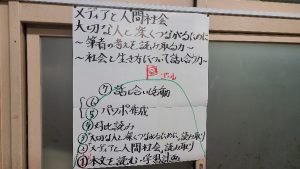 メディアと人間社会
大切な人と深くつながるために
～筆者の考えを読み取る力～
～社会と生き方について話し合う力～
ゴール
⑦話し合い活動
⑥
⑤パワポ作成
④対比読み
③大切な人と深くつながるために、読み取り
②メディアと人間社会、読み取り
①本文を読む・学習計画